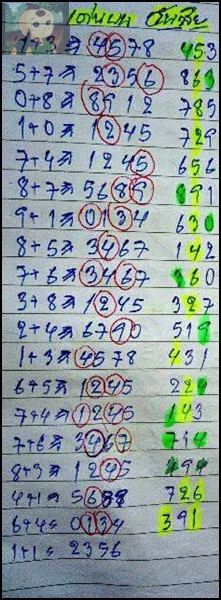 เด่นบน วันศีล
4+3 = 4578 453
5+7 = 2356 869
0+8 = 8912 785
1+0 = 1245 729
7+4 = 1245 656
8+7 = 5689 891
9+1 = 0134 630
8+5 = 3467 142
7+6 = 3467 360
3+8 = 1245 327
2+4 = 6790 519
1+3 = 4578 431
6+5 = 1245 224
7+4 = 1245 143
7+6 = 3467 714
8+3 = 1245 494
4+1 = 5689 726
6+4 = 0134 391
1+1 = 2356